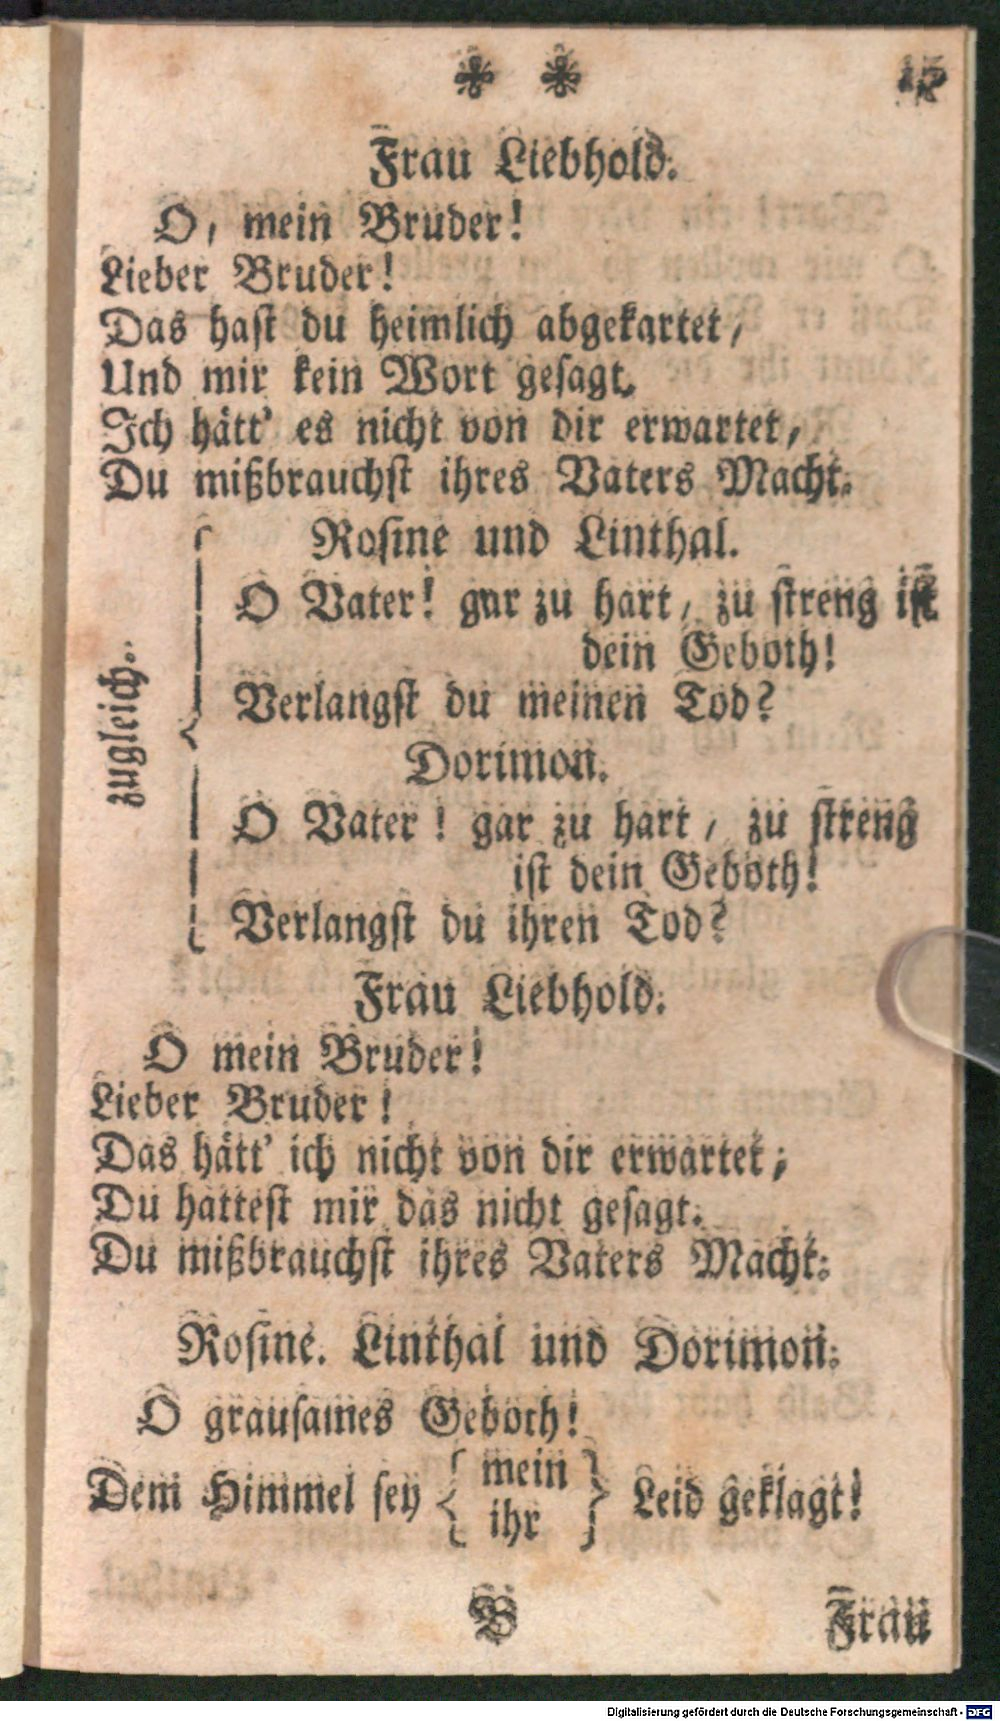 15
Frau Liebhold.
O, mein Bruder!
Lieber Bruder!
Das hast du heimlich abgekartet,
Und mir kein Wort gesagt.
Ich hätt' es nicht von dir erwartet,
Du mißbrauchst ihres Vaters Macht.
Rosine und Linthal.
O Vater! gar zu hart, zu streng ist
dein Geboth!
Verlangst du meinen Tod?
zugleich.
Dorimon.
O Vater! gar zu hart, zu streng
ist dein Geboth!
Verlangst du ihren Tod?
Frau Liebhold.
O mein Bruder!
Lieber Bruder!
Das hätt' ich nicht von dir erwartet;
Du hattest mir das nicht gesagt.
Du mißbrauchst ihres Vaters Macht.
Rosine. Linthal und Dorimon.
O grausames Geboth!
Dem Himmel sey { mein
ihr } Leid geklagt!
B Frau
Digitalisierung gefördert durch die Deutsche Forschungsgemeinschaft - DFG